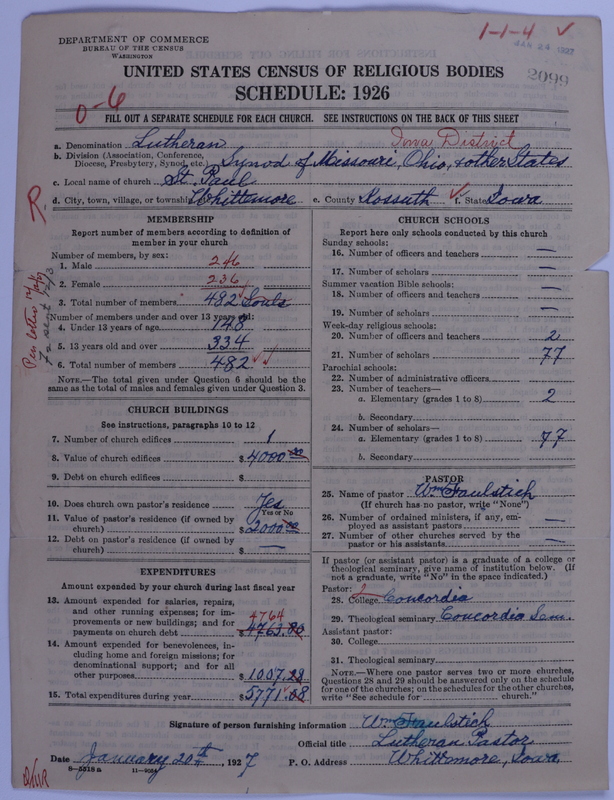 DEPARTMENT OF COMMERCE
BUREAU OF THE CENSUS
WASHINGTON
1-1-4 ✓
JAN 24 1927
2099
UNITED STATES CENSUS OF RELIGIOUS BODIES
SCHEDULE: 1926
0-6
FILL OUT A SEPARATE SCHEDULE FOR EACH CHURCH. SEE INSTRUCTIONS ON THE BACK OF THIS SHEET
Iowa District
a. Denomination Lutheran
b. Division (Association, Conference, Diocese, Presbytery, Synod, etc.) Synod of Missouri, Ohio, & other States
c. Local name of church St. Paul
d. City, town, village, or township Whittemore e. County Kossuth ✓ f. State Iowa
R.
MEMBERSHIP
Report number of members according to definition of
member in your church
Number of members, by sex:
1. Male 246
2. Female 236
3. Total number of members 482 Souls
Number of members under and over 13 years old:
4. Under 13 years of age 148
5. 13 years old and over 334
6. Total number of members 482 ✓
NOTE.—The total given under Question 6 should be the
same as the total of males and females given under Question 3.
CHURCH BUILDINGS
See instructions, paragraphs 10 to 12
7. Number of church edifices 1
8. Value of church edifices $ 4000.00
9. Debt on church edifices $
10. Does church own pastor's residence Yes
Yes or No
11. Value of pastor's residence (if owned by
church) $ 2000.00
12. Debt on pastor's residence (if owned by
church) $ —
EXPENDITURES
Amount expended by your church during last fiscal year
13. Amount expended for salaries, repairs,
and other running expenses; for im-
provements or new buildings; and for
payments on church debt $ 4763.80
4764
14. Amount expended for benevolences, in-
cluding home and foreign missions; for
denominational support; and for all
other purposes $ 1007.28
15. Total expenditures during year $ 5771.08
CHURCH SCHOOLS
Report here only schools conducted by this church
Sunday schools:
16. Number of officers and teachers —
17. Number of scholars —
Summer vacation Bible schools:
18. Number of officers and teachers —
19. Number of scholars —
Week-day religious schools:
20. Number of officers and teachers 2
21. Number of scholars 77
Parochial schools:
22. Number of administrative officers
23. Number of teachers—
a. Elementary (grades 1 to 8) 2
b. Secondary
24. Number of scholars—
a. Elementary (grades 1 to 8) 77
b. Secondary
PASTOR
25. Name of pastor Wm Faulstich
(If church has no pastor, write "None")
26. Number of ordained ministers, if any, em-
ployed as assistant pastors —
27. Number of other churches served by the
pastor or his assistants —
If pastor (or assistant pastor) is a graduate of a college or
theological seminary, give name of institution below. (If
not a graduate, write "No" in the space indicated.)
Pastor:
28. College Concordia
29. Theological seminary Concordia Sem.
Assistant pastor:
30. College
31. Theological seminary
NOTE.—Where one pastor serves two or more churches,
Questions 28 and 29 should be answered only on the schedule
for one of the churches; on the schedules for the other churches,
write "See schedule for church."
Signature of person furnishing information Wm Faulstich
Official title Lutheran Pastor
Date January 20th, 1927 P. O. Address Whittemore, Iowa
8—5518 a